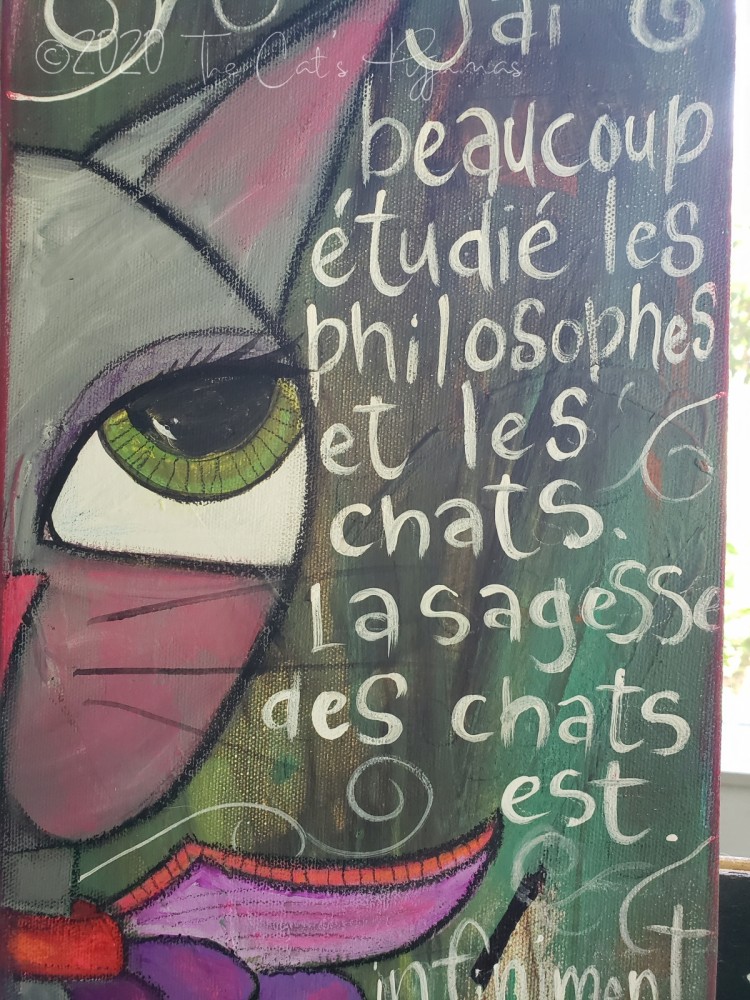 ©2020 The Cat's Pajamas
J'ai
beaucoup
étudié les
philosophes
et les
chats.
La sagesse
des chats
est.
infiniment